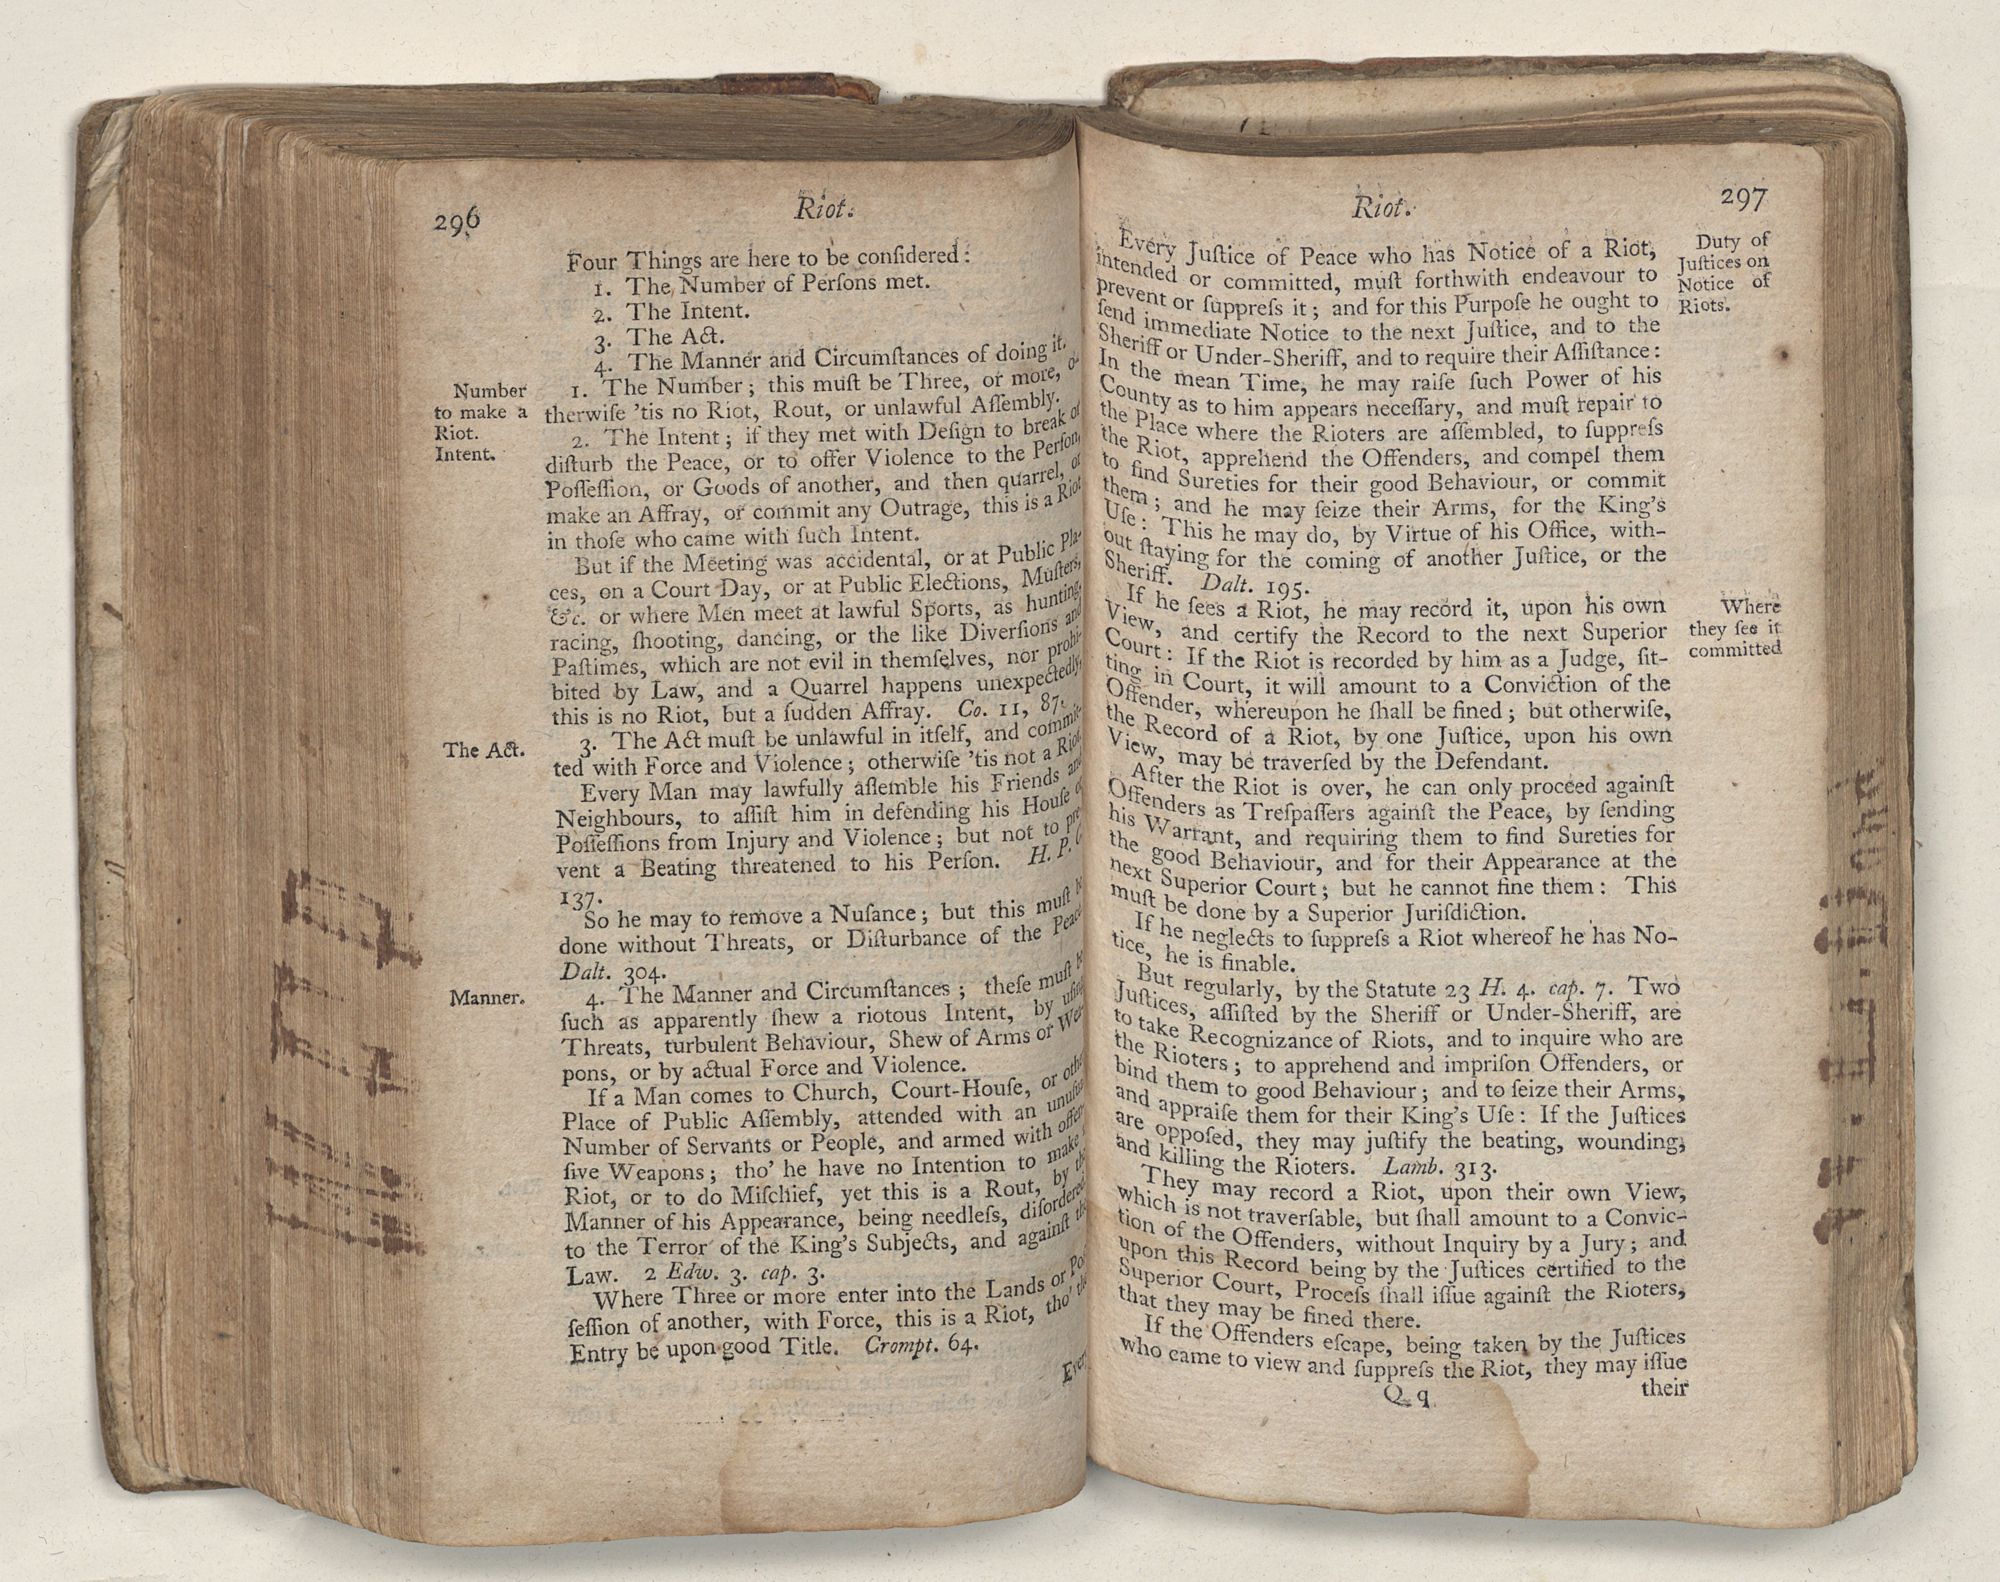 296
Riot.
Four Things are here to be conſidered:
1. The Number of Perſons met.
2. The Intent.
3. The Act.
4. The Manner and Circumſtances of doing it.
Number
to make a
Riot.
Intent.
1. The Number; this muſt be Three, or more, o-
therwiſe 'tis no Riot, Rout, or unlawful Aſſembly.
2. The Intent; if they met with Deſign to break or
diſturb the Peace, or to offer Violence to the Perſon,
Poſſeſſion, or Goods of another, and then quarrel, or
make an Affray, or commit any Outrage, this is a Riot
in thoſe who came with ſuch Intent.
But if the Meeting was accidental, or at Public Pla-
ces, on a Court Day, or at Public Elections, Muſters,
&c. or where Men meet at lawful Sports, as hunting,
racing, ſhooting, dancing, or the like Diverſions and
Paſtimes, which are not evil in themſelves, nor prohi-
bited by Law, and a Quarrel happens unexpectedly,
this is no Riot, but a ſudden Affray. Co. 11, 87.
The Act.
3. The Act muſt be unlawful in itſelf, and commit-
ted with Force and Violence; otherwiſe 'tis not a Riot.
Every Man may lawfully aſſemble his Friends and
Neighbours, to aſſiſt him in defending his Houſe or
Poſſeſſions from Injury and Violence; but not to pre
vent a Beating threatened to his Perſon. H. P.
137.
So he may to remove a Nuſance; but this muſt b
done without Threats, or Diſturbance of the Peac
Dalt. 304.
Manner.
4. The Manner and Circumſtances; theſe muſt b
ſuch as apparently ſhew a riotous Intent, by uſin
Threats, turbulent Behaviour, Shew of Arms or Wea-
pons, or by actual Force and Violence.
If a Man comes to Church, Court-Houſe, or othe
Place of Public Aſſembly, attended with an unuſua
Number of Servants or People, and armed with offen-
ſive Weapons; tho' he have no Intention to make
Riot, or to do Miſchief, yet this is a Rout, by the
Manner of his Appearance, being needleſs, diſordered,
to the Terror of the King's Subjects, and againſt the
Law. 2 Edw. 3. cap. 3.
Where Three or more enter into the Lands or Poſ
ſeſſion of another, with Force, this is a Riot, tho' the
Entry be upon good Title. Crompt. 64.
Every
297
Riot.
Duty of
Juſtices on
Notice of
Riots.
Every Juſtice of Peace who has Notice of a Riot,
intended or committed, muſt forthwith endeavour to
prevent or ſuppreſs it; and for this Purpoſe he ought to
ſend immediate Notice to the next Juſtice, and to the
Sheriff or Under-Sheriff, and to require their Aſſiſtance:
In the mean Time, he may raiſe ſuch Power of his
County as to him appears neceſſary, and muſt repair to
the Place where the Rioters are aſſembled, to ſuppreſs
the Riot, apprehend the Offenders, and compel them
to find Sureties for their good Behaviour, or commit
them; and he may ſeize their Arms, for the King's
Uſe: This he may do, by Virtue of his Office, with-
out ſtaying for the coming of another Juſtice, or the
Sheriff. Dalt. 195.
Where
they ſee it
committed
If he ſees a Riot, he may record it, upon his own
View, and certify the Record to the next Superior
Court: If the Riot is recorded by him as a Judge, ſit-
ting in Court, it will amount to a Conviction of the
Offender, whereupon he ſhall be fined; but otherwiſe,
the Record of a Riot, by one Juſtice, upon his own
View, may be traverſed by the Defendant.
After the Riot is over, he can only proceed againſt
Offenders as Treſpaſſers againſt the Peace, by ſending
his Warrant, and requiring them to find Sureties for
the good Behaviour, and for their Appearance at the
next Superior Court; but he cannot fine them: This
muſt be done by a Superior Juriſdiction.
If he neglects to ſuppreſs a Riot whereof he has No-
tice, he is finable.
But regularly, by the Statute 23 H. 4. cap. 7. Two
Juſtices, aſſiſted by the Sheriff or Under-Sheriff, are
to take Recognizance of Riots, and to inquire who are
the Rioters; to apprehend and impriſon Offenders, or
bind them to good Behaviour; and to ſeize their Arms,
and appraiſe them for their King's Uſe: If the Juſtices
are oppoſed, they may juſtify the beating, wounding,
and killing the Rioters. Lamb. 313.
They may record a Riot, upon their own View,
which is not traverſable, but ſhall amount to a Convic-
tion of the Offenders, without Inquiry by a Jury; and
upon this Record being by the Juſtices certified to the
Superior Court, Proceſs ſhall iſſue againſt the Rioters,
that they may be fined there.
If the Offenders eſcape, being taken by the Juſtices
who came to view and ſuppreſs the Riot, they may iſſue
Q q
their